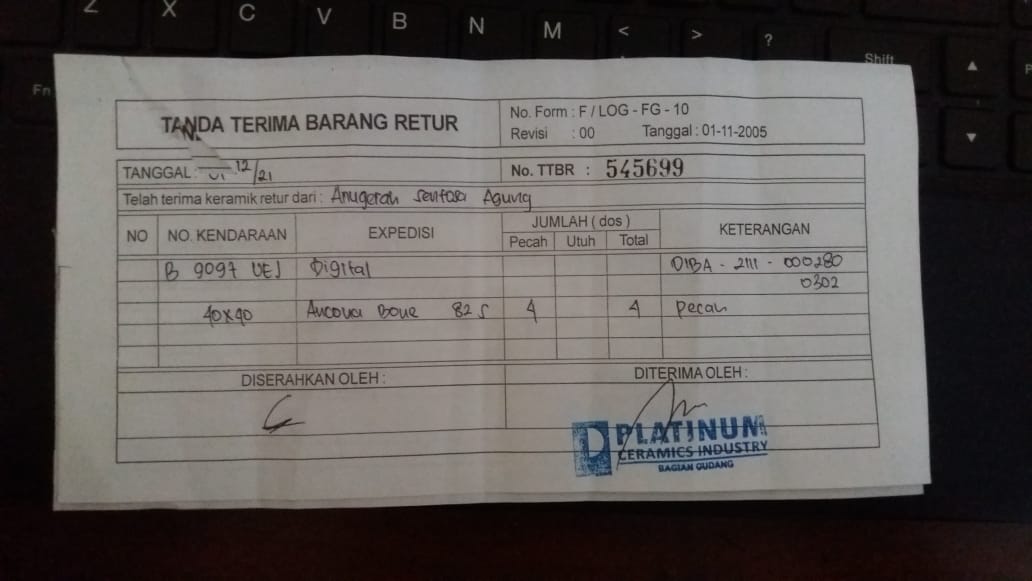 Z X C V B N M < > ?
Shift
Fn
TANDA TERIMA BARANG RETUR
No. Form : F / LOG - FG - 10
Revisi : 00 Tanggal : 01-11-2005
TANGGAL : 12/21
No. TTBR : 545699
Telah terima keramik retur dari : Anugerah Sentosa Agung
NO NO. KENDARAAN EXPEDISI JUMLAH ( dos ) KETERANGAN
Pecah Utuh Total
B 9097 UEJ Digital DIBA - 2111 - 000280
0302
40x40 Ancona Bone 82 S 4 4 Pecah
DISERAHKAN OLEH : DITERIMA OLEH :
PLATINUM
CERAMICS INDUSTRY
BAGIAN GUDANG